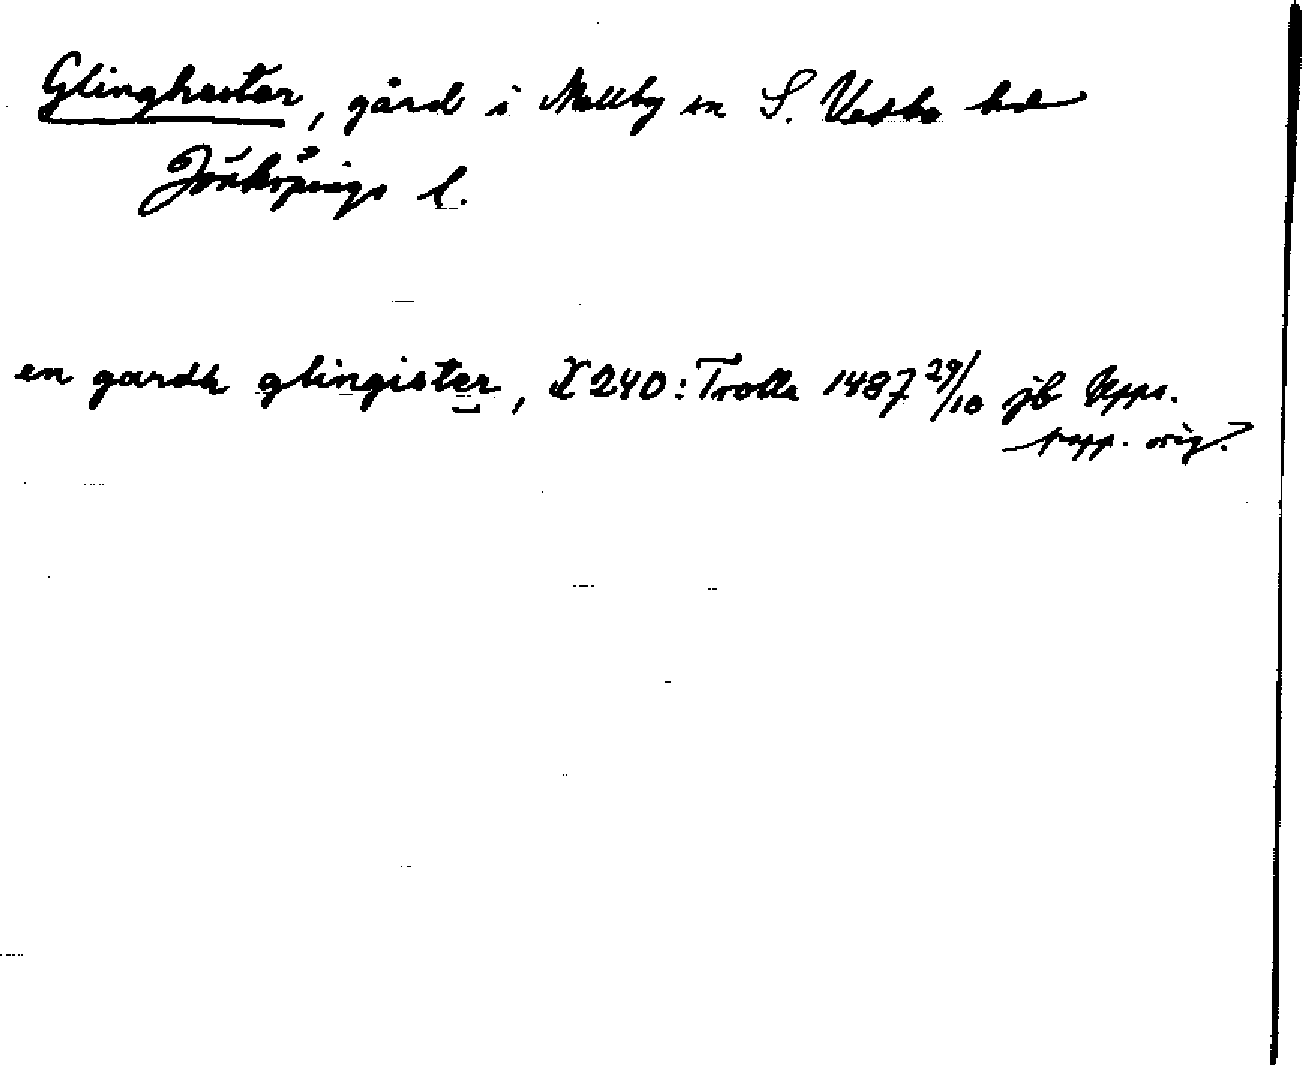 Glinghester, gård i Mellby sn S. Vedbo hd
Jönköpings l.
en gardh glingister, X 240: Trolla 1487 29/10 jb Upps.
papp. orig.